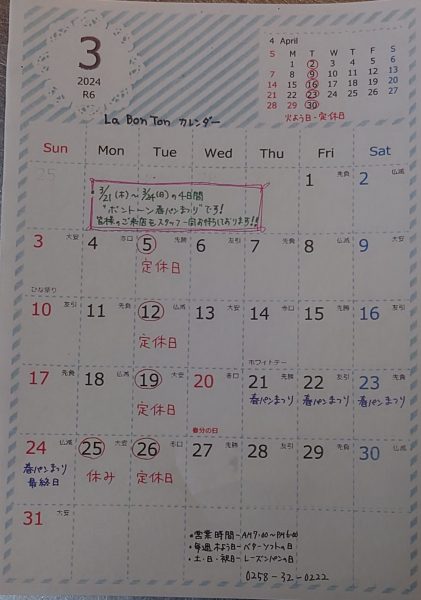 3
2024
R6
4 April
S M T W T F S
1 2 3 4 5 6
7 8 9 10 11 12 13
14 15 16 17 18 19 20
21 22 23 24 25 26 27
28 29 30
火よう日-定休日
La Bon Ton カレンダー
Sun Mon Tue Wed Thu Fri Sat
25
3/21(木)~3/24(日)の4日間
"ボントーン春パンまつり"です!
皆様のご来店をスタッフ一同お待ちしております!!
1 先負 2 仏滅
3 大安 4 赤口 5 先勝 6 友引 7 先負 8 仏滅 9 大安
定休日
ひな祭り
10 友引 11 先負 12 仏滅 13 大安 14 赤口 15 先勝 16 友引
定休日
ホワイトデー
17 先負 18 仏滅 19 大安 20 赤口 21 先勝 22 友引 23 先負
定休日 春パンまつり 春パンまつり 春パンまつり
春分の日
24 仏滅 25 大安 26 赤口 27 先勝 28 友引 29 先負 30 仏滅
春パンまつり 休み 定休日
最終日
31 大安
・営業時間-AM7:00~PM6:00
・毎週木よう日-バターソフトの日
・土・日・祝日-レーズンパンの日
0258-32-0222